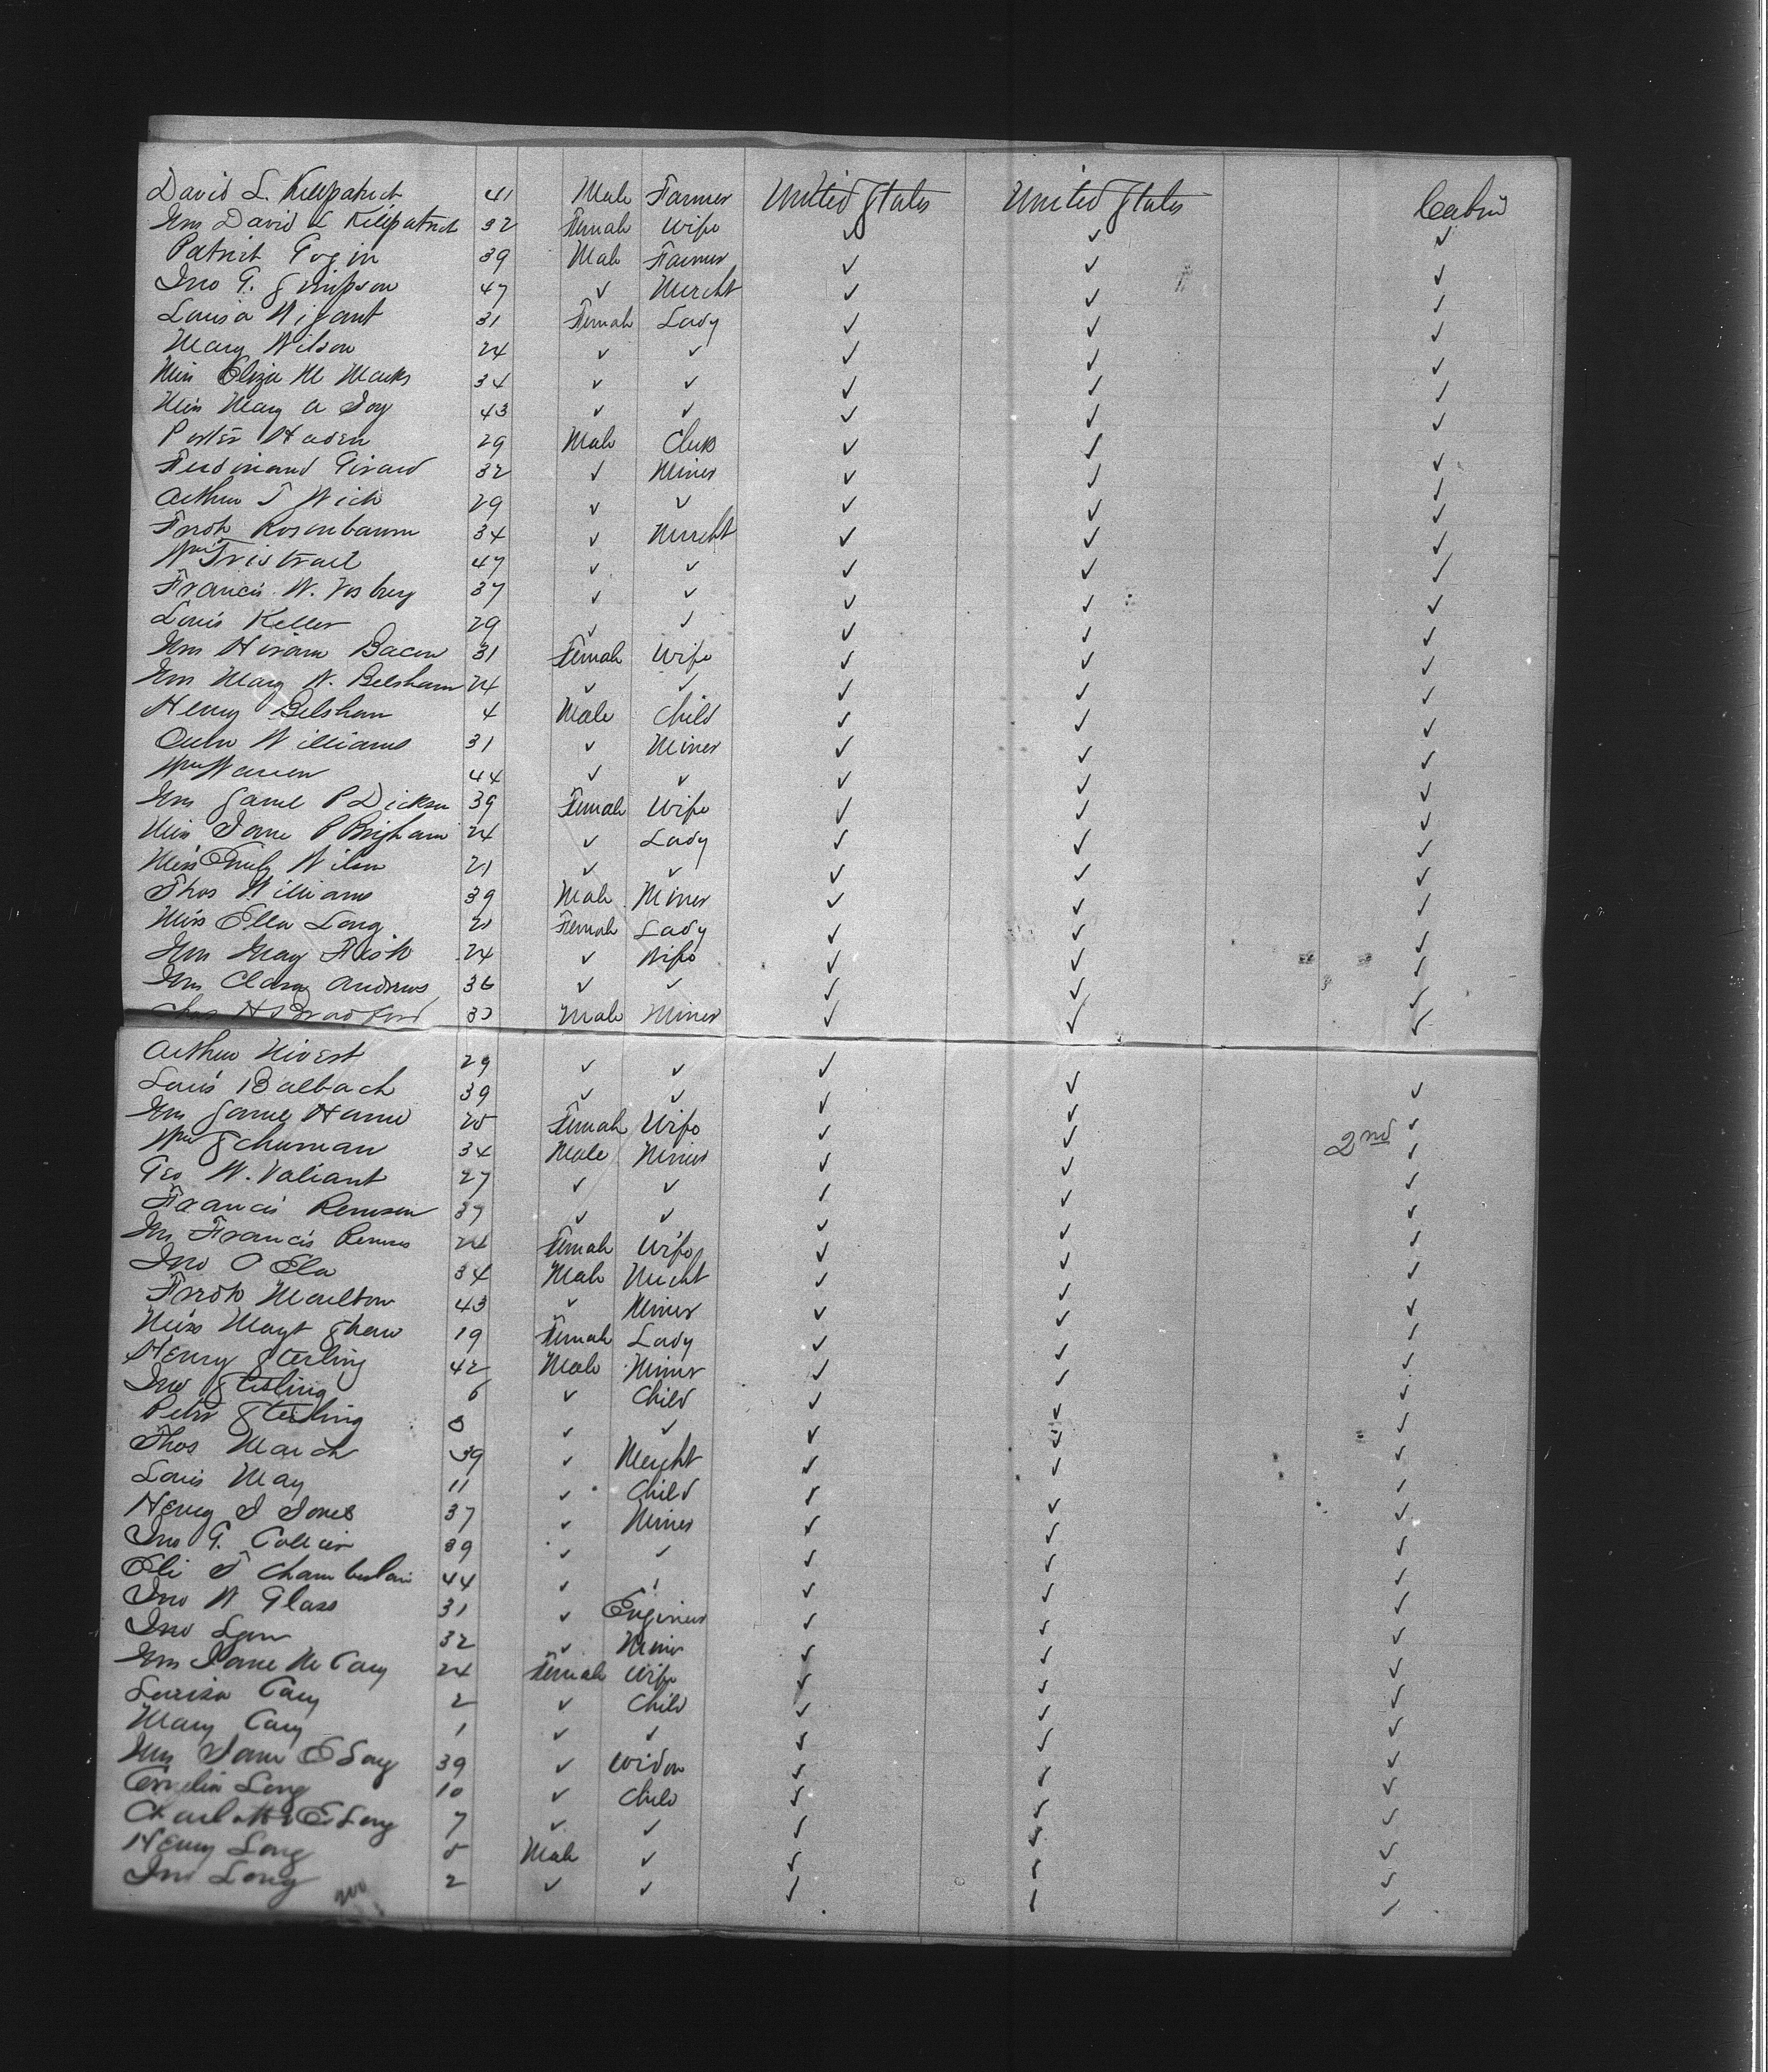 David L. Killpatrick 41 Male Farmer United States United States Cabin
Mrs David L Killpatrick 32 Female Wife ✓ ✓ ✓
Patrick Gogin 39 Male Farmer ✓ ✓ ✓
Jno G. Simpson 47 ✓ Mercht ✓ ✓ ✓
Louisa Wigant 31 Female Lady ✓ ✓ ✓
Mary Wilson 24 ✓ ✓ ✓ ✓ ✓
Miss Eliza M Marks 34 ✓ ✓ ✓ ✓ ✓
Miss Mary A Joy 43 ✓ ✓ ✓ ✓ ✓
Porter Haden 29 Male Clerk ✓ ✓ ✓
Ferdinand Girard 32 ✓ Miner ✓ ✓ ✓
Arthur T Wick 29 ✓ ✓ ✓ ✓ ✓
Fredk Rosenbaum 34 ✓ Mercht ✓ ✓ ✓
Wm Tristrael 47 ✓ ✓ ✓ ✓ ✓
Francis W. Vosburg 37 ✓ ✓ ✓ ✓ ✓
Louis Keller 29 ✓ ✓ ✓ ✓ ✓
Mrs Hiram Bacon 31 Female Wife ✓ ✓ ✓
Mrs Mary W. Belsham 24 ✓ ✓ ✓ ✓ ✓
Henry Belsham 4 Male Child ✓ ✓ ✓
Williams 31 ✓ Miner ✓ ✓ ✓
Wm Warren 44 ✓ ✓ ✓ ✓ ✓
Mrs Saml P Dickson 39 Female Wife ✓ ✓ ✓
Miss Jane P Brigham 24 ✓ Lady ✓ ✓ ✓
Miss Emily Wilson 21 ✓ ✓ ✓ ✓ ✓
Thos Williams 39 Male Miner ✓ ✓ ✓
Miss Ella Long 21 Female Lady ✓ ✓ ✓
Mrs May Fisk 24 ✓ Wife ✓ ✓ ✓
Mrs Clara Andrews 36 ✓ ✓ ✓ ✓ ✓
Chas H Bradford Male Miner ✓ ✓ ✓
Arthur Nivert 29 ✓ ✓ ✓ ✓ ✓
Louis Balbach 39 ✓ ✓ ✓ ✓ ✓
Mrs Saml Hanna 25 Female Wife ✓ ✓
Wm Schuman 34 Male Miner ✓ ✓ 2nd ✓
Geo W. Valiant 27 ✓ ✓ ✓ ✓ ✓
Francis Remsen 37 ✓ ✓ ✓ ✓ ✓
Mrs Francis Remsen 24 Female Wife ✓ ✓ ✓
Jno O Ela 34 Male Mercht ✓ ✓ ✓
Fredk Moulton 43 ✓ Miner ✓ ✓ ✓
Miss Magt Shaw 19 Female Lady ✓ ✓ ✓
Henry Sterling 42 Male Miner ✓ ✓ ✓
Jno Sterling 6 ✓ Child ✓ ✓ ✓
Peter Sterling 8 ✓ ✓ ✓ ✓ ✓
Thos March 39 ✓ Mercht ✓ ✓ ✓
Louis May 11 ✓ Child ✓ ✓ ✓
Henry J Jones 37 ✓ Miner ✓ ✓ ✓
Jno G. 39 ✓ ✓ ✓ ✓ ✓
Eli T Chamberlain 44 ✓ ✓ ✓ ✓ ✓
Jno W Glass 31 ✓ Engineer ✓ ✓ ✓
Jno 32 ✓ Miner ✓ ✓ ✓
Mrs Jane M Cary 24 Female Wife ✓ ✓ ✓
Louisa Cary 2 ✓ Child ✓ ✓ ✓
Mary Cary 1 ✓ ✓ ✓ ✓ ✓
Mrs Jane E Long 39 ✓ Widow ✓ ✓ ✓
Cornelia Long 10 ✓ Child ✓ ✓ ✓
Charlotte E Long 7 ✓ ✓ ✓ ✓ ✓
Henry Long 5 Male ✓ ✓ ✓ ✓
Jno Long 2 ✓ ✓ ✓ ✓ ✓